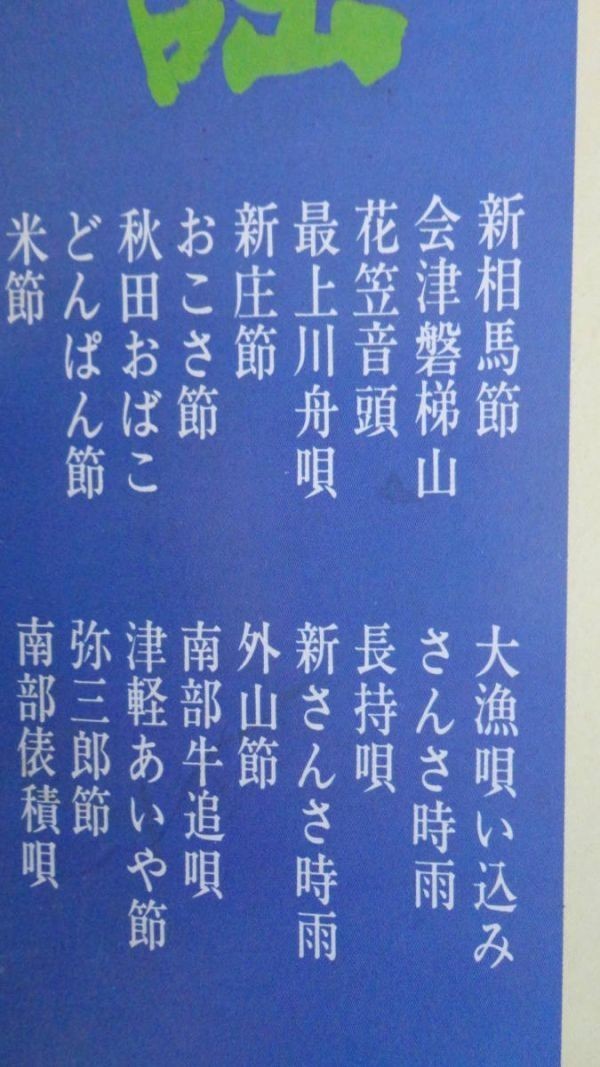 新相馬節
会津磐梯山
花笠音頭
最上川舟唄
新庄節
おこさ節
秋田おばこ
どんぱん節
米節
大漁唄い込み
さんさ時雨
長持唄
新さんさ時雨
外山節
南部牛追唄
津軽あいや節
弥三郎節
南部俵積唄